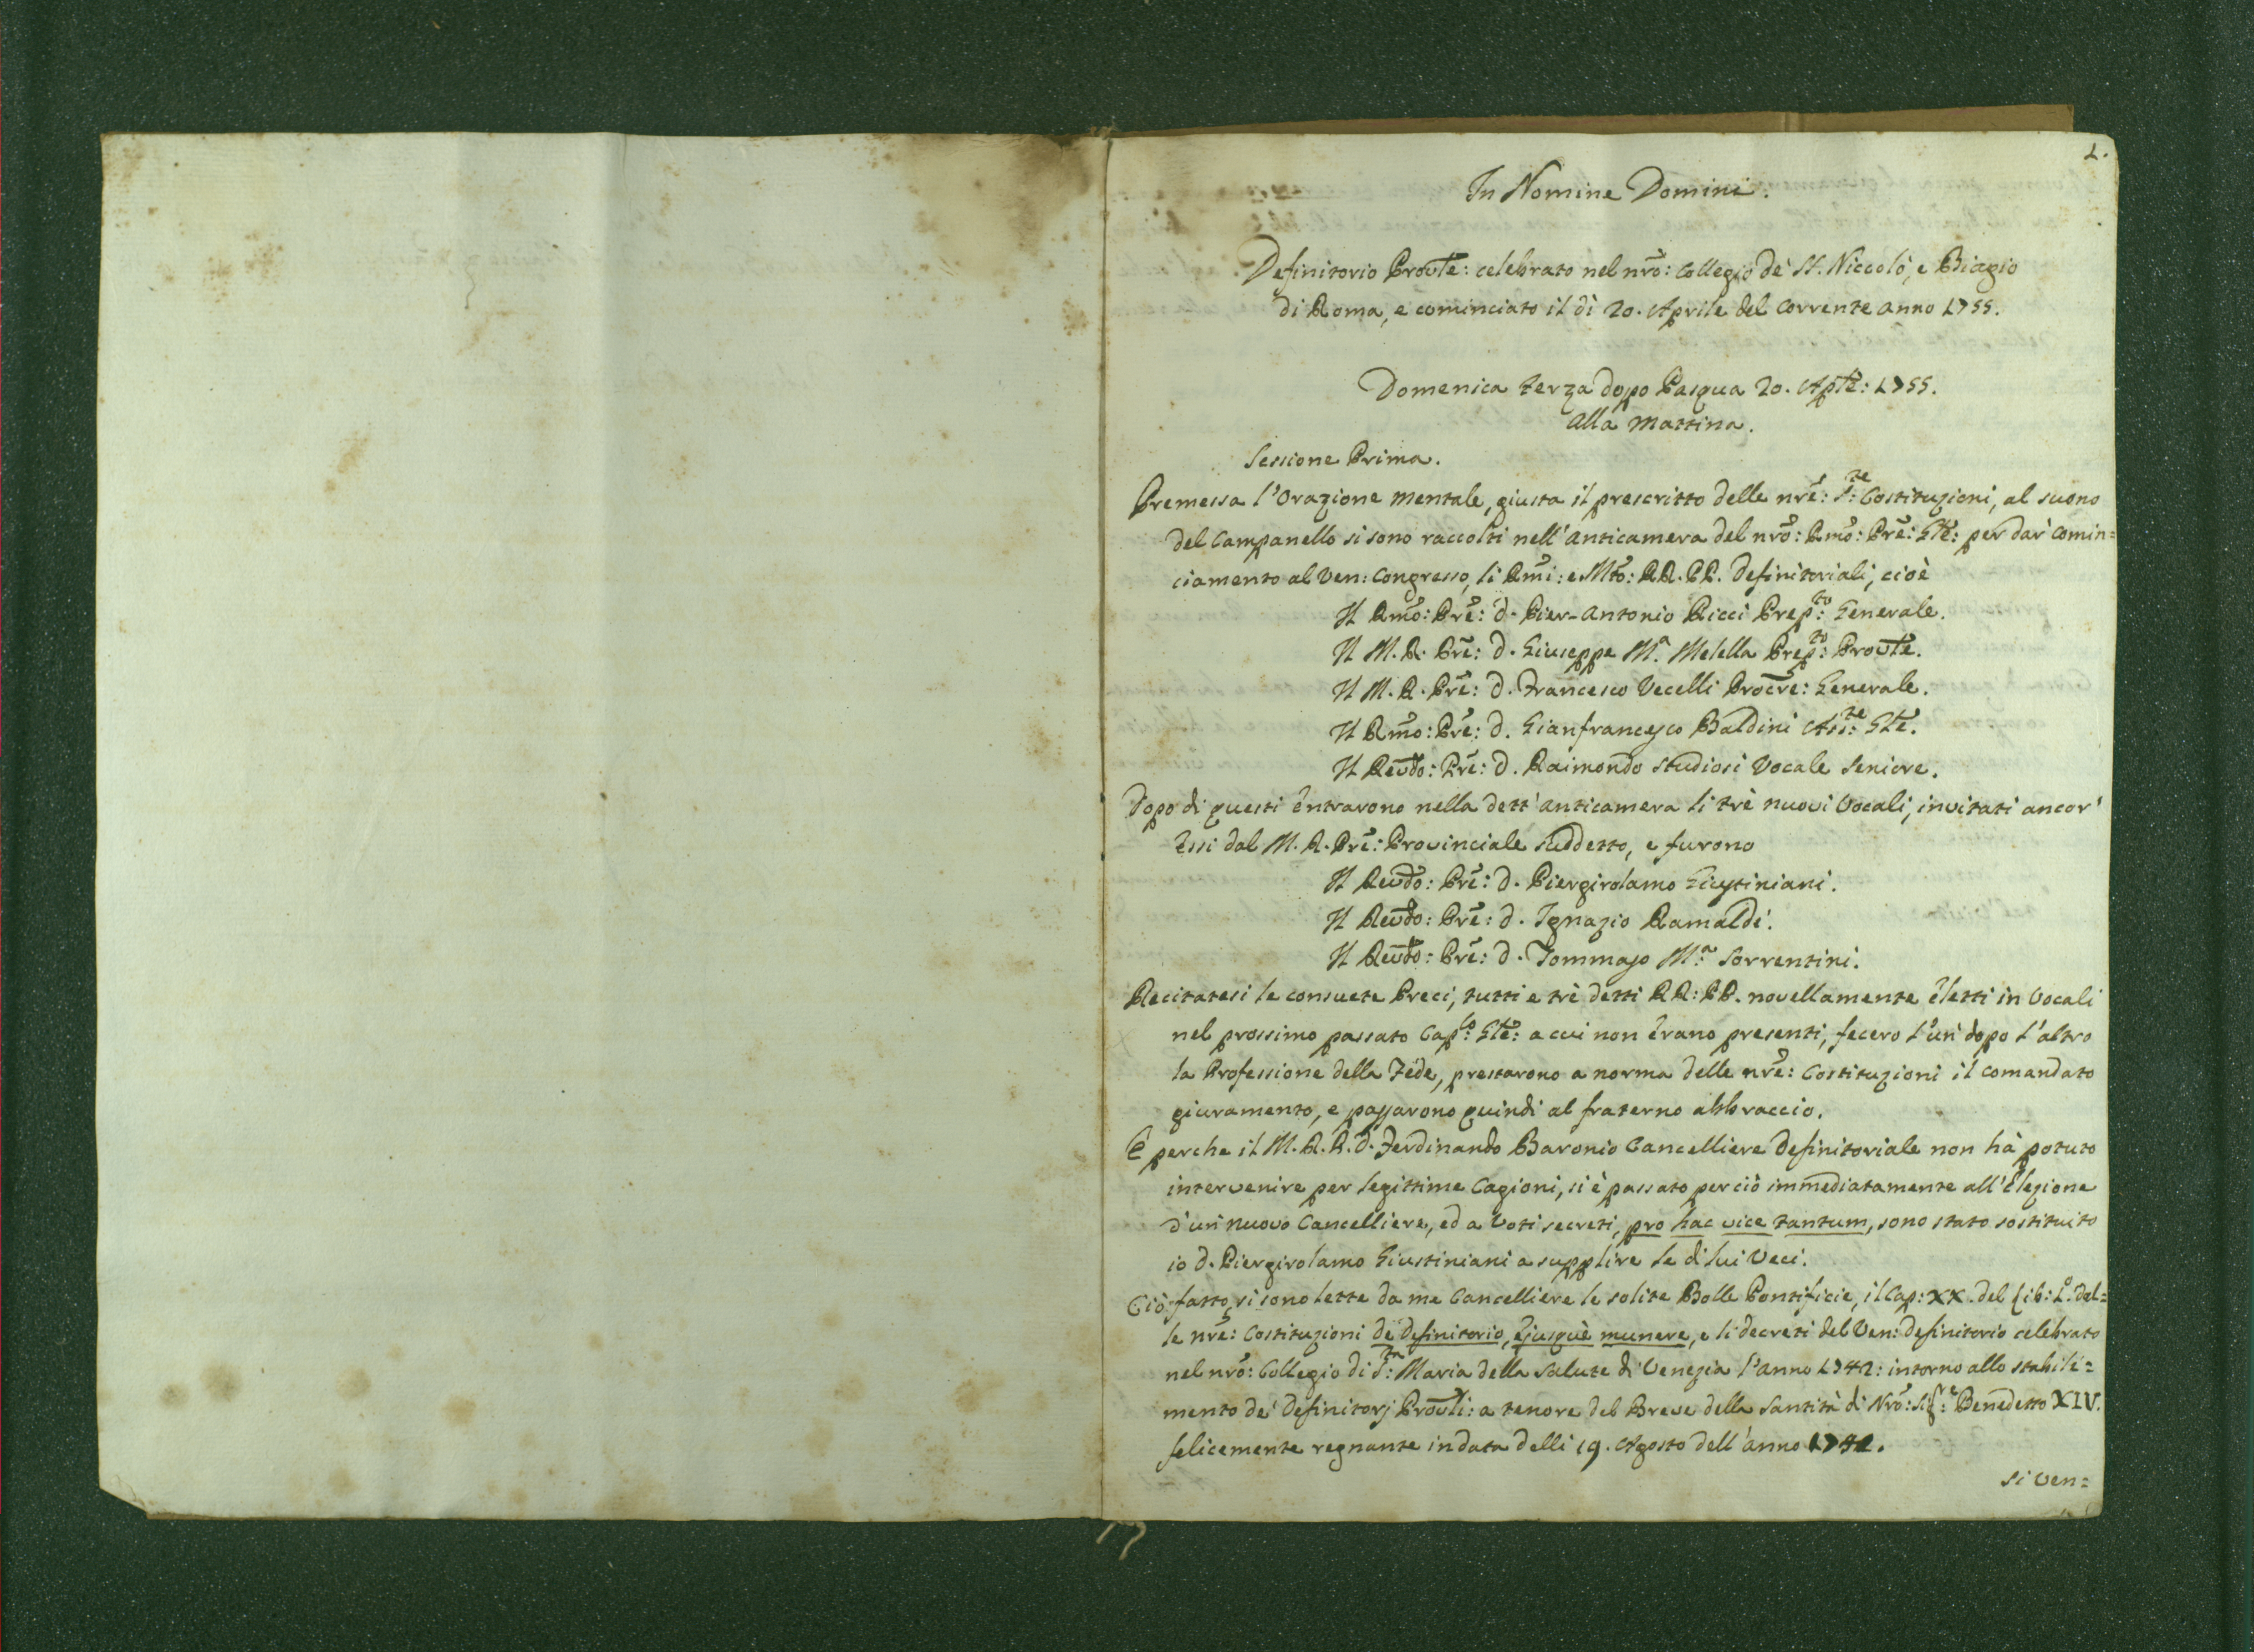 1.
In Nomine Domini.
Definitorio Provle: celebrato nel nro: Collegio de' SS. Niccolò, e Biagio
di Roma, e cominciato il dì 20. Aprile del corrente anno 1755.
Domenica terza dopo Pasqua 20. Aple: 1755.
alla mattina.
Sessione Prima.
Premessa l'Orazione mentale, giusta il prescritto delle nre: S:te Costituzioni, al suono
del Campanello si sono raccolti nell'anticamera del nro: Rmo: Pre: Gle: per dar comin=
ciamento al Ven: Congresso, li Rmi: e Mto: RR. PP. Definitoriali, cioè
Il Rmo: Pre: D. Pier-Antonio Ricci Prep:to Generale.
Il M. R. Pre: D. Giuseppe M.a Melella Prep:to Provle.
Il M. R. Pre: D. Francesco Vecelli Procre: Generale.
Il Rmo: Pre: D. Gianfrancesco Baldini Ass:te Gle.
Il Revdo: Pre: D. Raimondo Studiosi Vocale Seniore.
Dopo di questi entrarono nella dett'anticamera li trè nuovi Vocali, invitati ancor'
essi dal M. R. Pre: Provinciale suddetto, e furono
Il Revdo: Pre: D. Piergirolamo Giustiniani.
Il Revdo: Pre: D. Ignazio Ramaldi.
Il Revdo: Pre: D. Tommaso M:a Sorrentini.
Recitatesi le consuete Preci, tutti e trè detti RR: PP. novellamente eletti in Vocali
nel prossimo passato Cap:lo Gle: a cui non erano presenti, fecero l'un dopo l'altro
la Professione della Fede, prestarono a norma delle nre: Costituzioni il comandato
giuramento, e passarono quindi al fraterno abbraccio.
E perche il M. R. P. D. Ferdinando Baronio Cancelliere Definitoriale non hà potuto
intervenire per legittime Cagioni, si è passato perciò immediatamente all'Elezione
d'un nuovo Cancelliere, ed a Voti secreti, pro hac vice tantum, sono stato sostituito
io D. Piergirolamo Giustiniani a supplire le di lui Veci.
Ciò fatto, si sono lette da me Cancelliere le solite Bolle Pontificie, il Cap: XX. del Lib: 1.o del=
le nre: Costituzioni de Definitorio, ejusquè munere, e li decreti del Ven: Definitorio celebrato
nel nro: Collegio di S:ta Maria della Salute di Venezia l'anno 1742: intorno allo stabili=
mento de' Definitorj Provli: a tenore del Breve della Santità di Nro: Sig:re Benedetto XIV.
felicemente regnante in data delli 19. Agosto dell'anno
si ven=